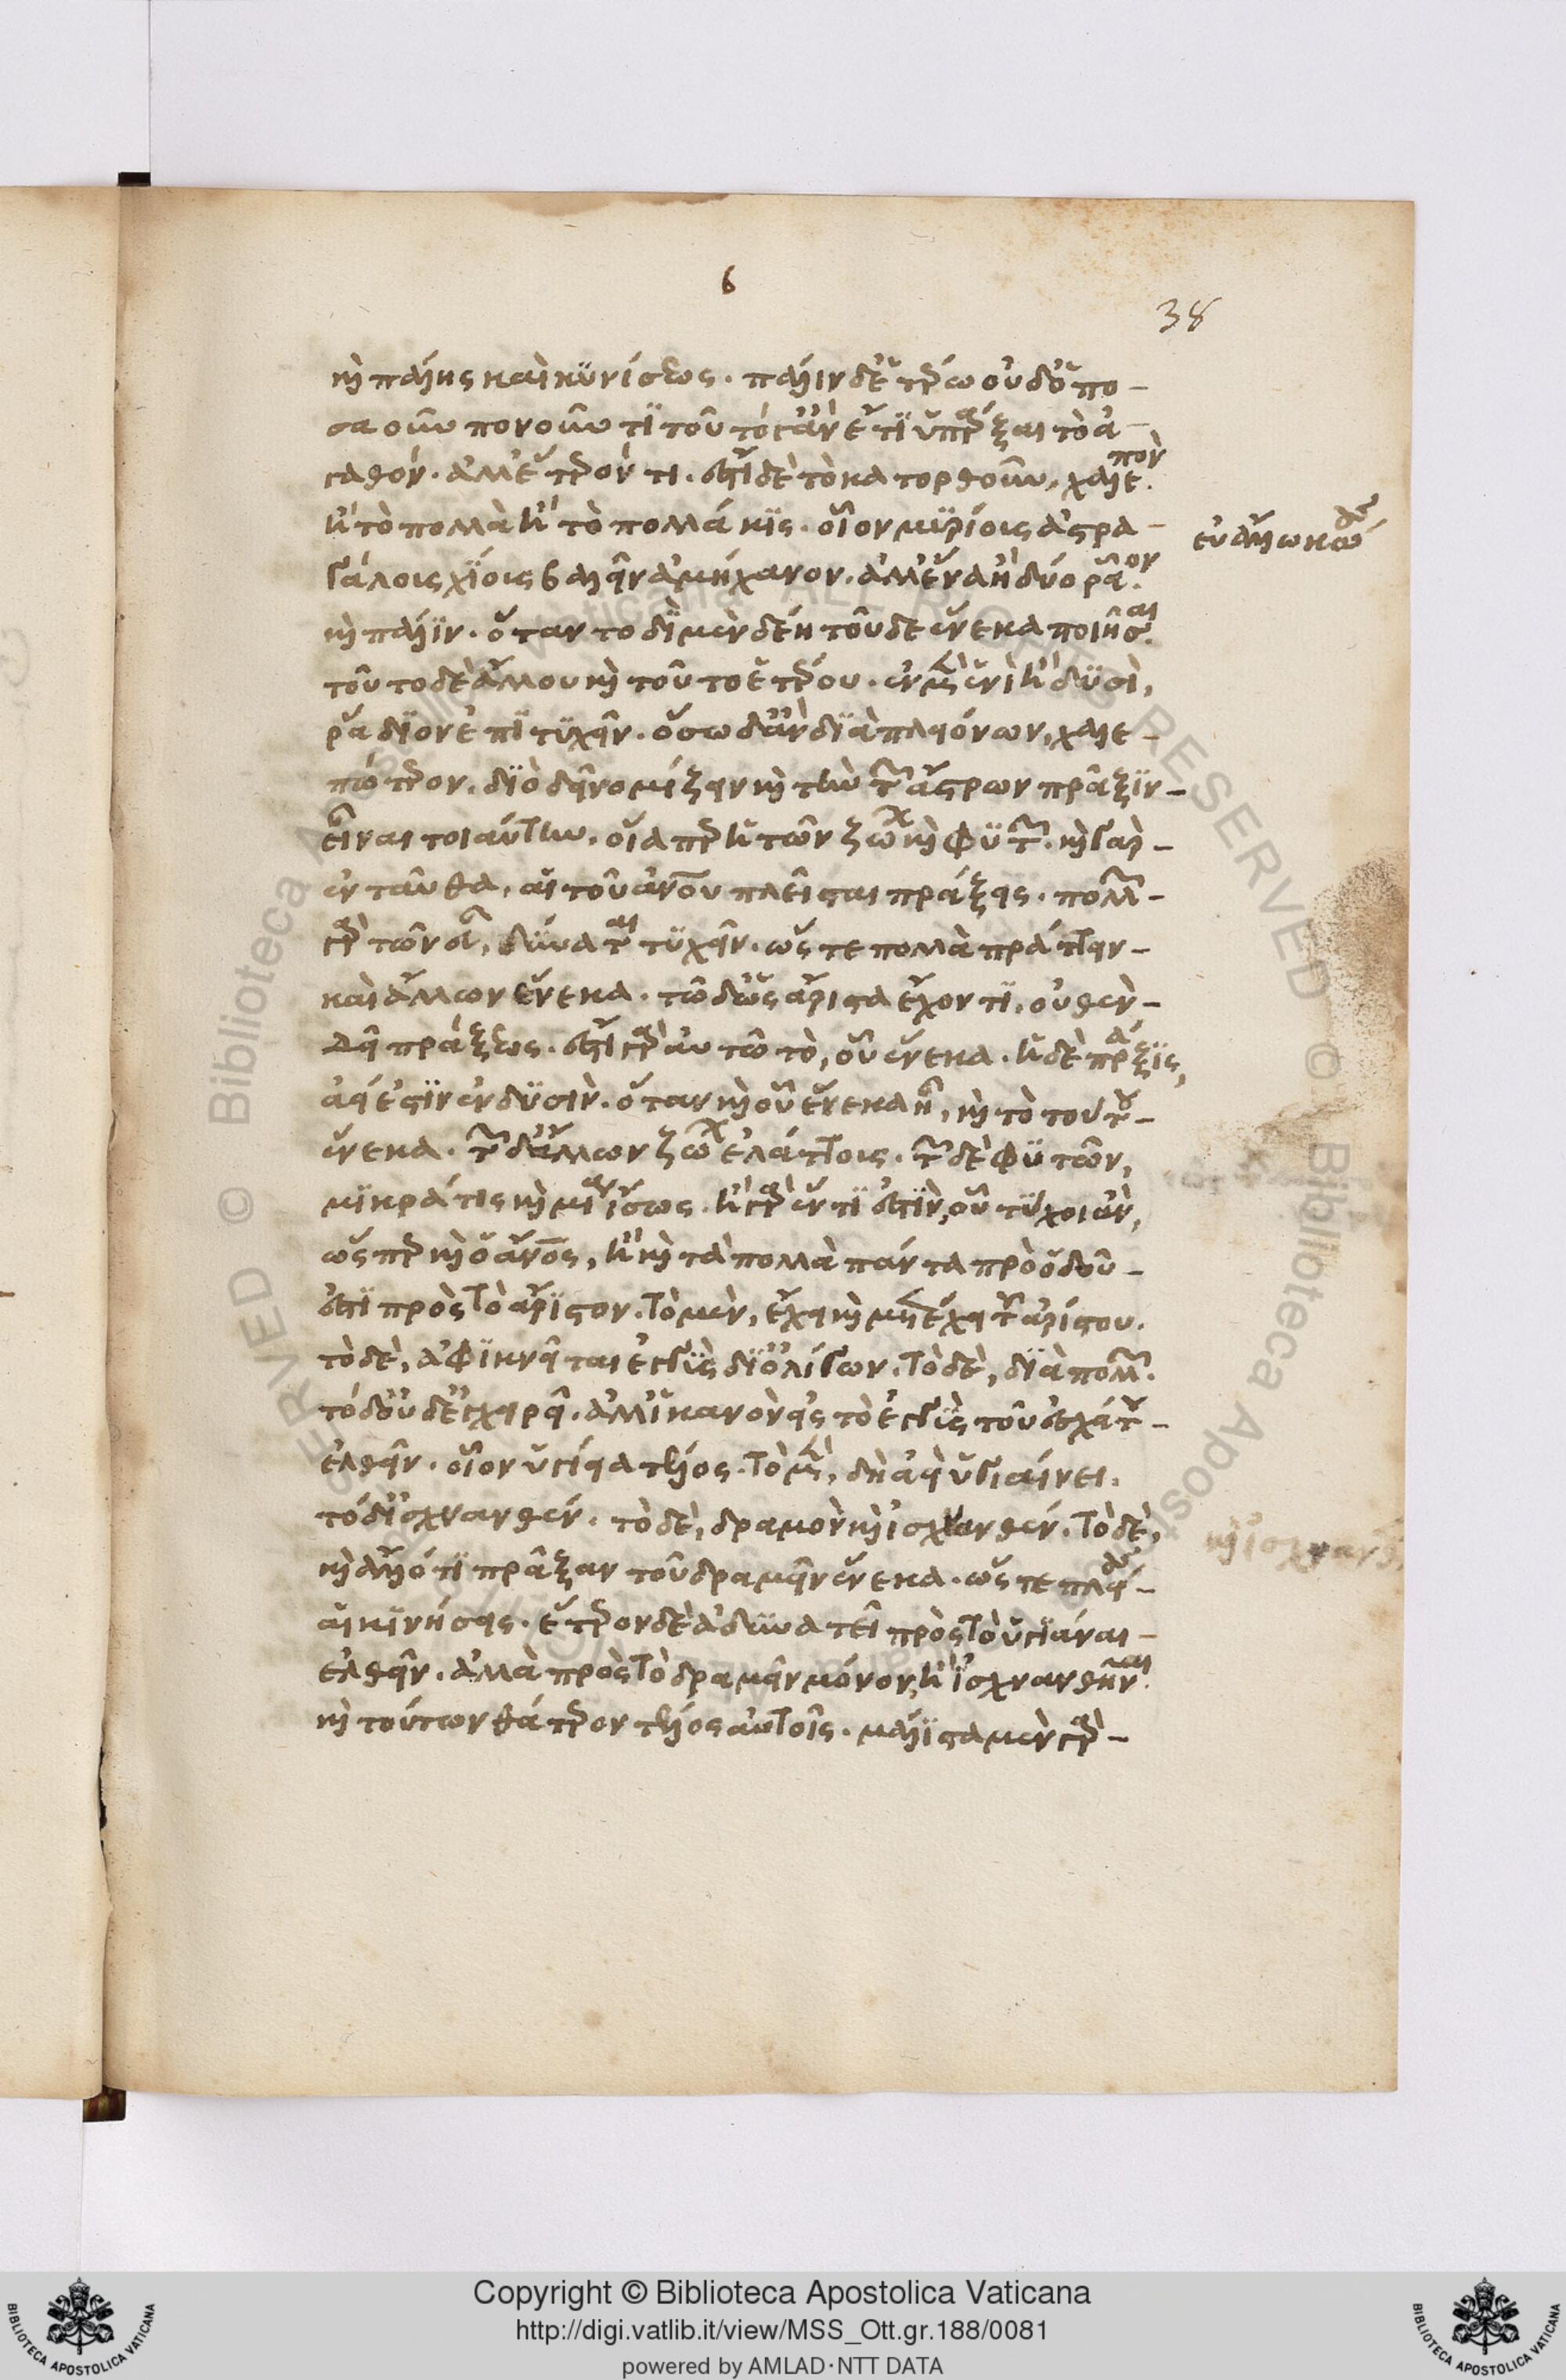 6
38
καὶ πάλης καὶ κυνίσεως. πάλιν δ' ἑτέρω οὐδ' ὁπο-
σαοῦν πονοῦντι τοῦτό γ' ἂν ἔτι ὑπάρξαι τὸ ἀ-
γαθόν. ἀλλ' ἕτερόν τι. ἔστι δὲ τὸ κατορθοῦν, χαλεπόν.
ἢ τὸ πολλὰ ἢ τὸ πολλάκις. οἷον μυρίοις ἀστρα-
γάλοις χίοις βαλεῖν ἀμήχανον. ἀλλ' ἕνα ἢ δύο ρᾶον.
καὶ πάλιν. ὅταν τοδὶ μὲν δέη τοῦδε ἕνεκα ποιῆσαι.
τοῦτο δὲ ἄλλου καὶ τοῦτο ἑτέρου. ἐν μὲν ἑνὶ ἢ δυσὶ,
ράδιον ἐπιτυχεῖν. ὅσω δ' ἂν διὰ πλειόνων, χαλε-
πώτερον. διὸ δεῖ νομίζειν καὶ τὴν τῶν ἄστρων πρᾶξιν-
εἶναι τοιαύτην. οἵα περ ἡ τῶν ζώων καὶ φυτῶν. καὶ γὰρ-
ἐνταῦθα, αἱ τοῦ ἀνου πλεῖσται πράξεις. πολλῶν-
γὰρ τῶν εὖ, δύναται τυχεῖν. ὥστε πολλὰ πράττειν-
καὶ ἄλλων ἕνεκα. τῶ δ' ὡς ἄριστα ἔχοντι, οὐθὲν-
δεῖ πράξεως. ἔστι γὰρ αὐτῶ τὸ, οὗ ἕνεκα. ἡ δὲ πρᾶξις,
ἀεί ἐστιν ἐν δυσὶν. ὅταν καὶ οὗ ἕνεκα ἦ, καὶ τὸ τούτου-
ἕνεκα. τῶν δ' ἄλλων ζώων ἐλάττοις. τῶν δὲ φυτῶν,
μικρά τις καὶ μία ἴσως. ἢ γὰρ ἕν τί ἐστιν, οὗ τύχοι ἂν,
ὥσπερ καὶ ὁ ἄνος, ἢ καὶ τὰ πολλὰ πάντα πρὸ ὁδοῦ-
ἐστὶ πρὸς τὸ ἄριστον. τὸ μὲν, ἔχει καὶ μετέχει τοῦ ἀρίστου.
τὸ δὲ, ἀφικνεῖται ἐγγὺς δι' ὀλίγων. τὸ δὲ, διὰ πολλῶν.
τὸ δ' οὐδ' ἐγχειρεῖ. ἀλλ' ἱκανὸν εἰς τὸ ἐγγὺς τοῦ ἐσχάτου-
ἐλθεῖν. οἷον ὑγίεια τέλος. τὸ μὲν, δὴ ἀεὶ ὑγιαίνει.
τὸ δ' ἰσχνανθέν. τὸ δὲ, δραμὸν καὶ ἰσχνανθέν. τὸ δὲ,
καὶ ἄλλό τι πρᾶξαν τοῦ δραμεῖν ἕνεκα. ὥστε πλείους-
αἱ κινήσεις. ἕτερον δὲ ἀδυνατεῖ πρὸς τὸ ὑγιάναι-
ἐλθεῖν. ἀλλὰ πρὸς τὸ δραμεῖν μόνον, ἢ ἰσχνανθῆναι.
καὶ τούτων θάτερον τέλος αὐτοῖς. μάλιστα μὲν γὰρ-
καὶ ἰσχνανθ
Copyright © Biblioteca Apostolica Vaticana
http://digi.vatlib.it/view/MSS_Ott.gr.188/0081
powered by AMLAD·NTT DATA
BIBLIOTECA APOSTOLICA VATICANA
BIBLIOTECA APOSTOLICA VATICANA